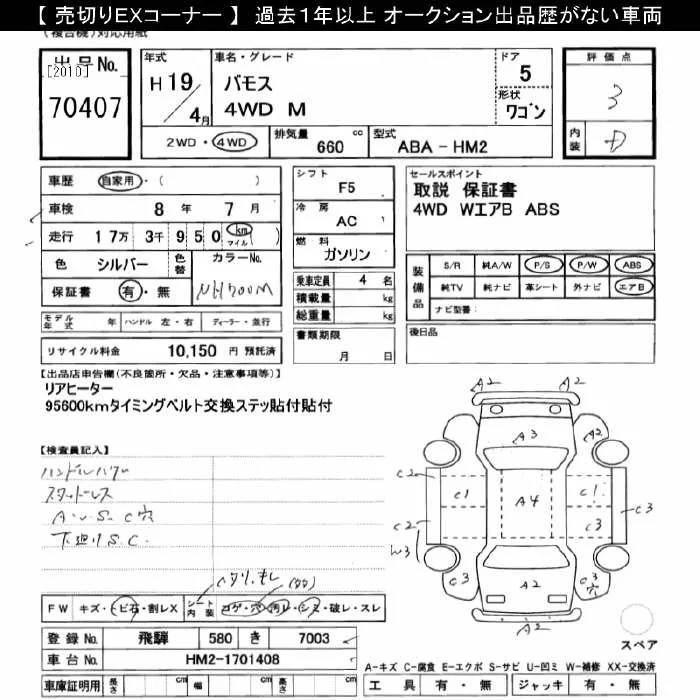 【 売切りEXコーナー 】 過去１年以上 オークション出品歴がない車両
(複合機)対応用紙
出品No.
[2010]
70407
年式
H 19/4月
車名・グレード
バモス
4WD M
ドア
5
形状
ワゴン
2WD・4WD
排気量 660 cc
型式 ABA-HM2
評価点
3
内装
D
車歴 自家用・( )
車検 8年 7月
走行 17万 3千 950 km マイル ( )
色 シルバー
色替
カラーNo.
NH700M
保証書 有・無
シフト
F5
冷房
AC
燃料
ガソリン
乗車定員 4名
積載量 kg
総重量 kg
書類期限
月 日
セールスポイント
取説 保証書
4WD WエアB ABS
装備品
S/R 純A/W P/S P/W ABS
純TV 純ナビ 革シート 外ナビ エアB
ナビ型番：
後日品
モデル年式 年 ハンドル 左・右 ディーラー・並行
リサイクル料金 10,150 円 預託済
【出品店申告欄(不良箇所・欠品・注意事項等)】
リアヒーター
95600kmタイミングベルト交換ステッ貼付貼付
【検査員記入】
スタットレス
下廻りS.C.
FW キズ・トビ石・割レX
シート内装 コゲ・穴・汚レ・シミ・破レ・スレ
登録No. 飛騨 580 き 7003
車台No. HM2-1701408
車庫証明用 長さ cm 幅 cm 高さ cm
A2
A2
A3
A2
C2
C1
A4
C1
C3
C2
C3
W3
C3
A2
C3
穴
A2
スペア
A-キズ C-腐食 E-エクボ S-サビ U-凹ミ W-補修 XX-交換済
工具 有・無 ジャッキ 有・無